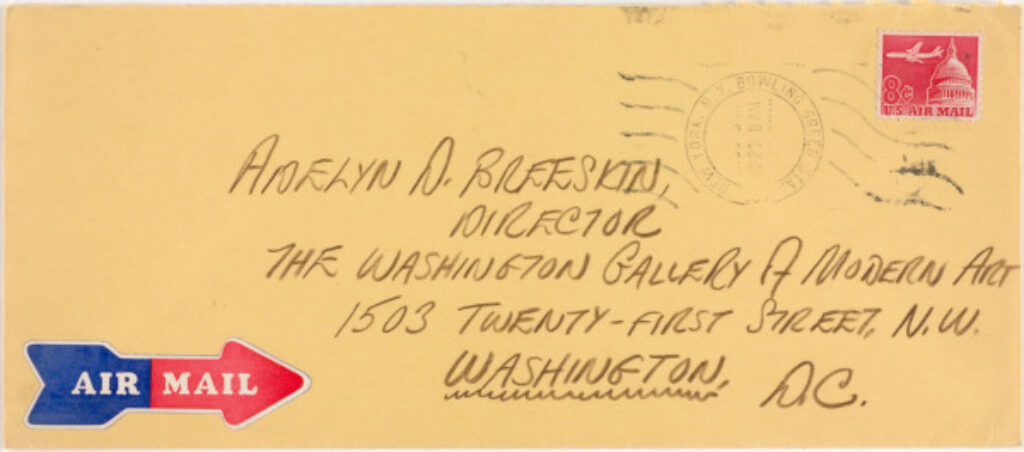 8¢
U.S. AIR MAIL
NEW YORK, N.Y. BOWLING GREEN STA.
ADELYN D. BREESKIN,
DIRECTOR
THE WASHINGTON GALLERY OF MODERN ART
1503 TWENTY-FIRST STREET, N.W.
WASHINGTON, D.C.
AIR MAIL